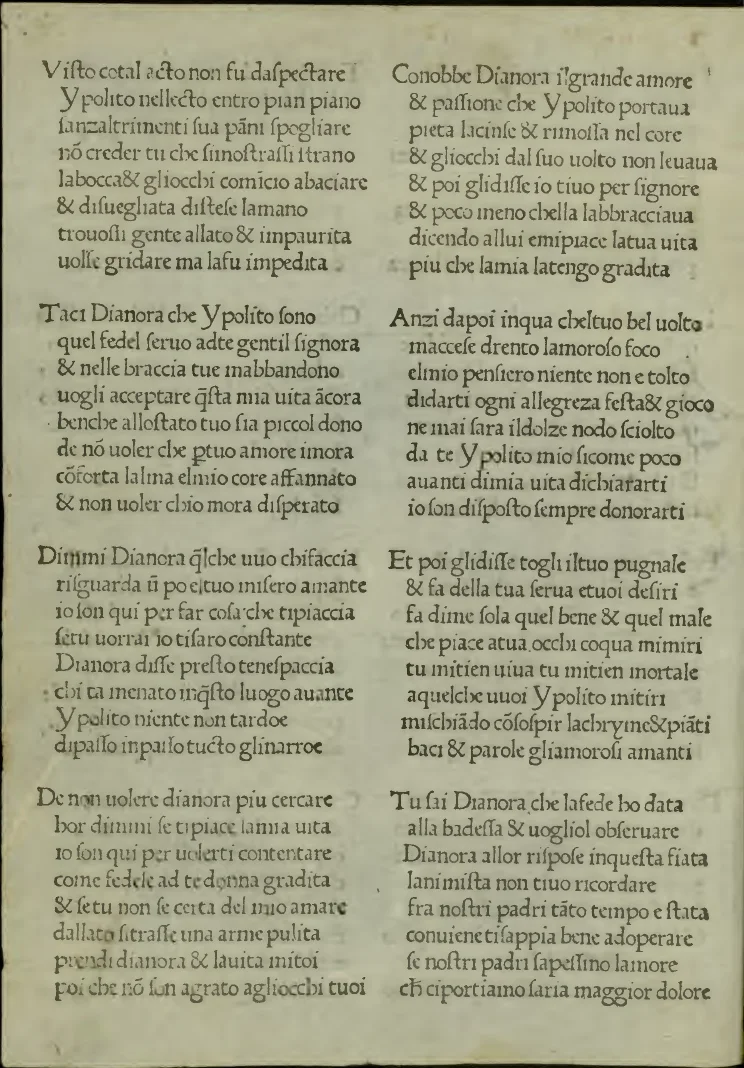 Viſto cotal acto non fu daſpectare
Ypolito nellecto entro pian piano
ſanzaltrimenti ſua pãni ſpogliare
nõ creder tu che ſimoſtraſſi ſtrano
labocca& gliocchi comĩcio abaciare
& diſuegliata diſteſe lamano
trouoſſi gente allato & impaurita
uolſe gridare ma lafu impedita

Taci Dianora che Ypolito ſono
quel fedel ſeruo adte gentil ſignora
& nelle braccia tue mabbandono
uogli acceptare q̃ſta mia uita ãcora
benche alloſtato tuo ſia piccol dono
de nõ uoler che ꝑtuo amore imora
cõforta lalma elmio core affannato
& non uoler chio mora diſperato

Dimmi Dianora q̃lche uuo chifaccia
riſguarda ũ po eltuo miſero amante
io ſon qui per far coſa che tipiaccia
ſetu uorrai io tiſaro conſtante
Dianora diſſe preſto teneſpaccia
chi ta menato inq̃ſto luogo auante
Ypolito niente non tardoe
dipaſſo inpaſſo tucto glinarroe

De non uolere dianora piu cercare
hor dimmi ſe tipiace lamia uita
io ſon qui per uolerti contentare
come fedele ad te donna gradita
& ſetu non ſe certa del mio amare
dallato ſitraſſe una arme pulita
prendi dianora & lauita mitoi
poi che nõ ſon agrato agliocchi tuoi

Conobbe Dianora ilgrande amore
& paſſione che Ypolito portaua
pieta lacinſe & rimoſſa nel core
& gliocchi dal ſuo uolto non leuaua
& poi glidiſſe io tiuo per ſignore
& poco meno chella labbracciaua
dicendo allui emipiace latua uita
piu che lamia latengo gradita

Anzi dapoi inqua cheltuo bel uolto
macceſe drento lamoroſo foco
elmio penſiero niente non e tolto
didarti ogni allegreza feſta& gioco
ne mai ſara ildolze nodo ſciolto
da te Ypolito mio ſicome poco
auanti dimia uita dichiararti
io ſon diſpoſto ſempre donorarti

Et poi glidiſſe togli iltuo pugnale
& fa della tua ſerua etuoi deſiri
fa dime ſola quel bene & quel male
che piace atua occhi coqua mimiri
tu mitien uiua tu mitien mortale
aquelche uuoi Ypolito mitiri
miſchiãdo cõſoſpir lachryme&piãti
baci & parole gliamoroſi amanti

Tu ſai Dianora che lafede ho data
alla badeſſa & uogliol obſeruare
Dianora allor riſpoſe inqueſta fiata
lanimiſta non tiuo ricordare
fra noſtri padri tãto tempo e ſtata
conuiene tiſappia bene adoperare
ſe noſtri padri ſapeſſino lamore
ch̃ ciportiamo ſaria maggior dolore